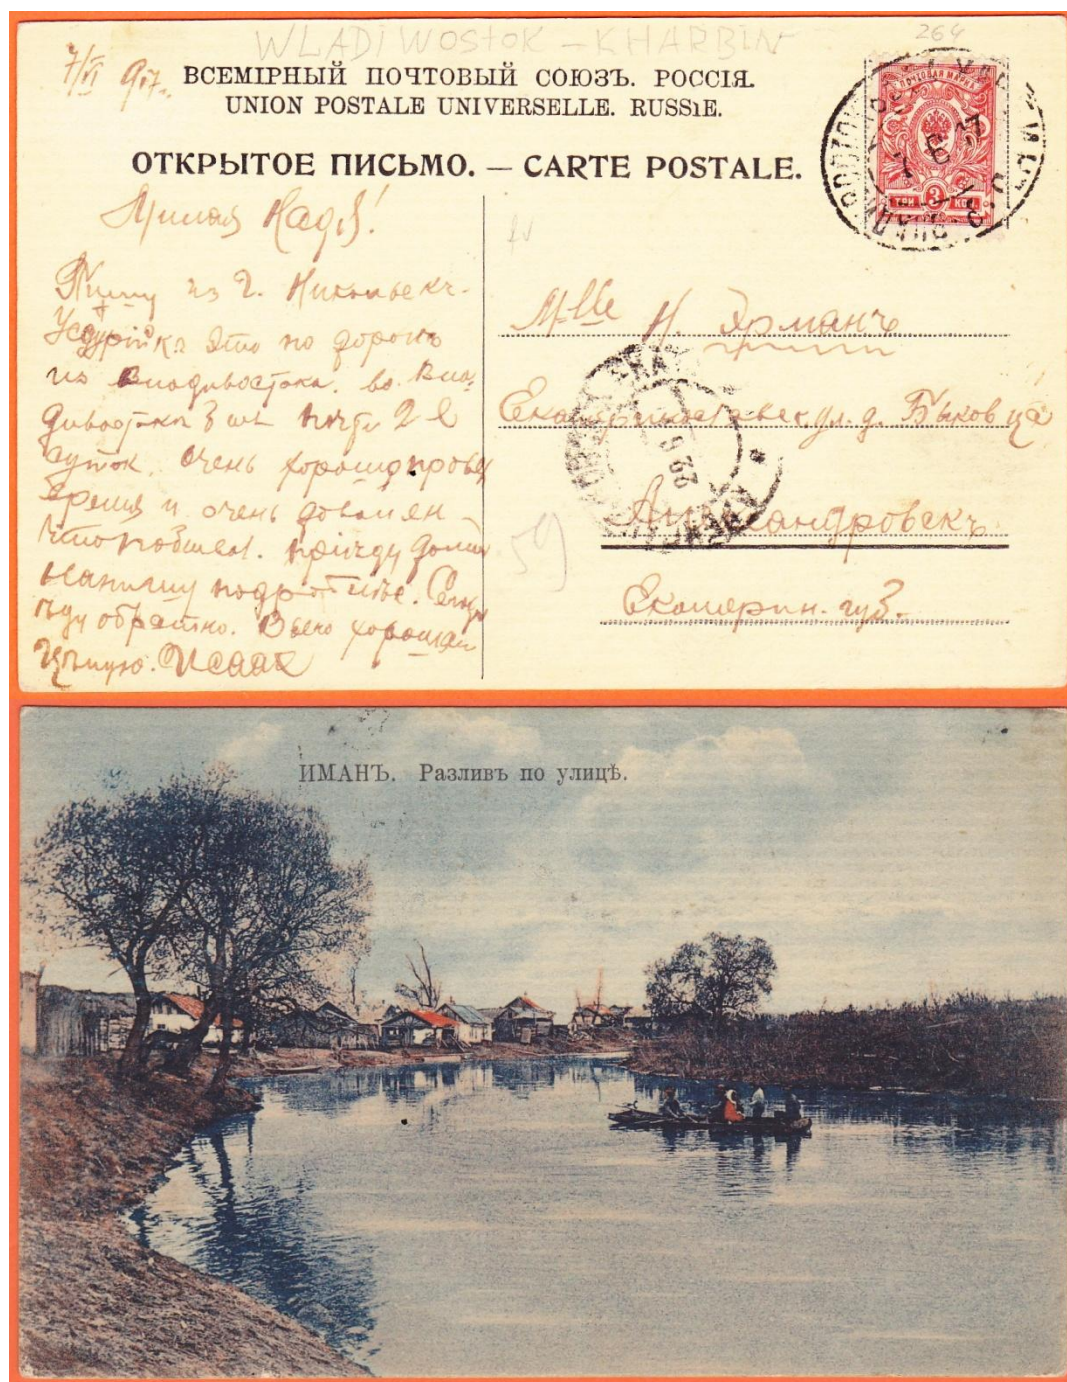 WLADIWOSTOK – KHARBIN
264
7/VI 917.
ВСЕМІРНЫЙ ПОЧТОВЫЙ СОЮЗЪ. РОССІЯ.
UNION POSTALE UNIVERSELLE. RUSSIE.
ОТКРЫТОЕ ПИСЬМО. — CARTE POSTALE.
ПОЧТОВАЯ МАРКА
3
ТРИ КОП.
7 6 17
Милая Надя!
Пишу из г. Никольскъ-
Уссурійскъ это по дорогѣ
изъ Владивостока. Во Вла-
дивостокѣ 3 шт почти 2
суток. Очень хорошо провел
время и очень доволен
что побывал. Приѣду домой
напишу подробнѣе. Сегодн
ѣду обратно. Всего хорошаго
Цѣлую. Исаак
M-lle Н. Ярманъ
Екатеринославск. ул. д. Быковца
Александровскъ
Екатерин. губ.
22 6
59
ИМАНЪ. Разливъ по улицѣ.